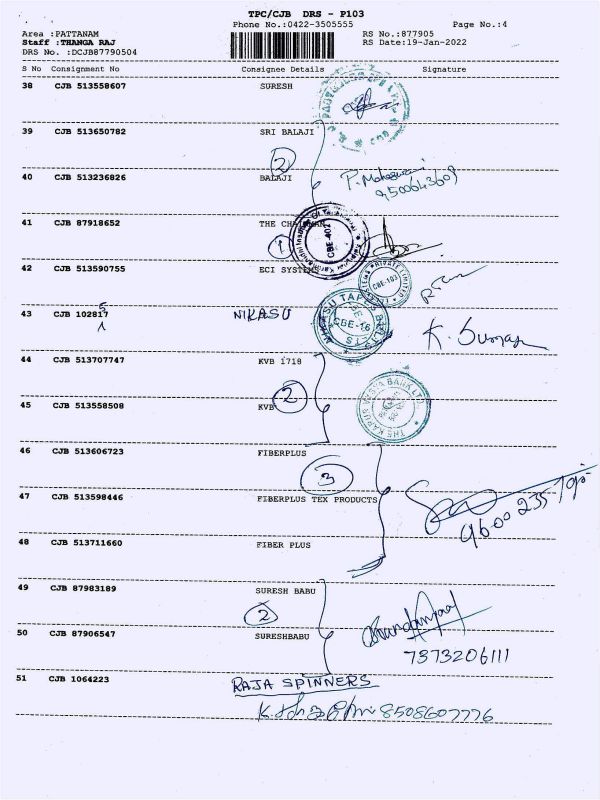 TPC/CJB DRS - P103
Phone No.:0422-3505555 Page No.:4
Area :PATTANAM RS No.:877905
Staff :THANGA RAJ RS Date:19-Jan-2022
DRS No. :DCJB87790504
S No Consignment No Consignee Details Signature
38 CJB 513558607 SURESH
39 CJB 513650782 SRI BALAJI
2
40 CJB 513236826 BALAJI P. Maheswari
9500643609
41 CJB 87918652 THE CHAIRMAN
CBE-402
1
42 CJB 513590755 ECI SYSTEMS
PRIVATE LIMITED
CBE-103
43 CJB 102817 NIKASU
5
NIKASU TAPES
CBE-16
K. Suman
44 CJB 513707747 KVB 1718
2
45 CJB 513558508 KVB
THE KARUR VYSYA BANK LTD
46 CJB 513606723 FIBERPLUS
3
47 CJB 513598446 FIBERPLUS TEX PRODUCTS
48 CJB 513711660 FIBER PLUS
49 CJB 87983189 SURESH BABU
2
50 CJB 87906547 SURESHBABU
7373206111
51 CJB 1064223 RAJA SPINNERS
8508607776